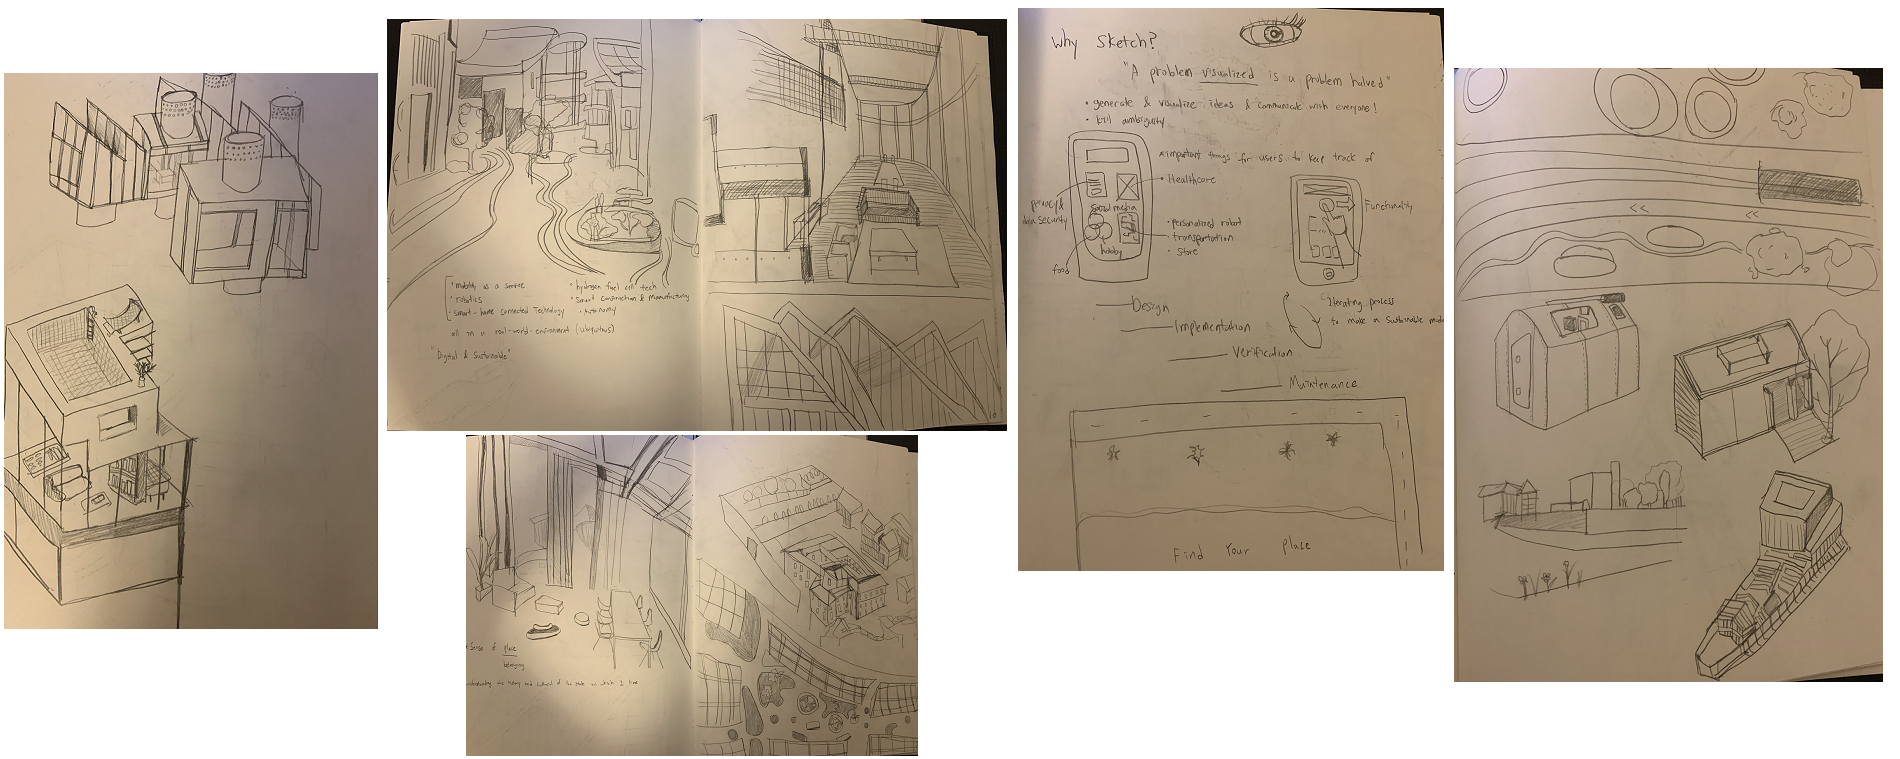 • mobility as a service
• robotics
• smart-home connected Technology
• hydrogen fuel cell tech
• Smart construction & Manufacturing
• Autonomy
all in a real-world-environment (ubiquitous)
"Digital & Sustainable"
10
Sense of place
belonging
understanding the history and culture of the state
Why Sketch?
"A problem visualized is a problem halved"
• generate & visualize ideas & communicate with everyone!
• kill ambiguity
important things for users to keep track of
• Healthcare
privacy &
data security
Social media
• personalized robot
• transportation
• Store
hobby
food
Functionality
Design
Implementation
Verification
Maintenance
Iterating process
to make a sustainable
Find Your Place